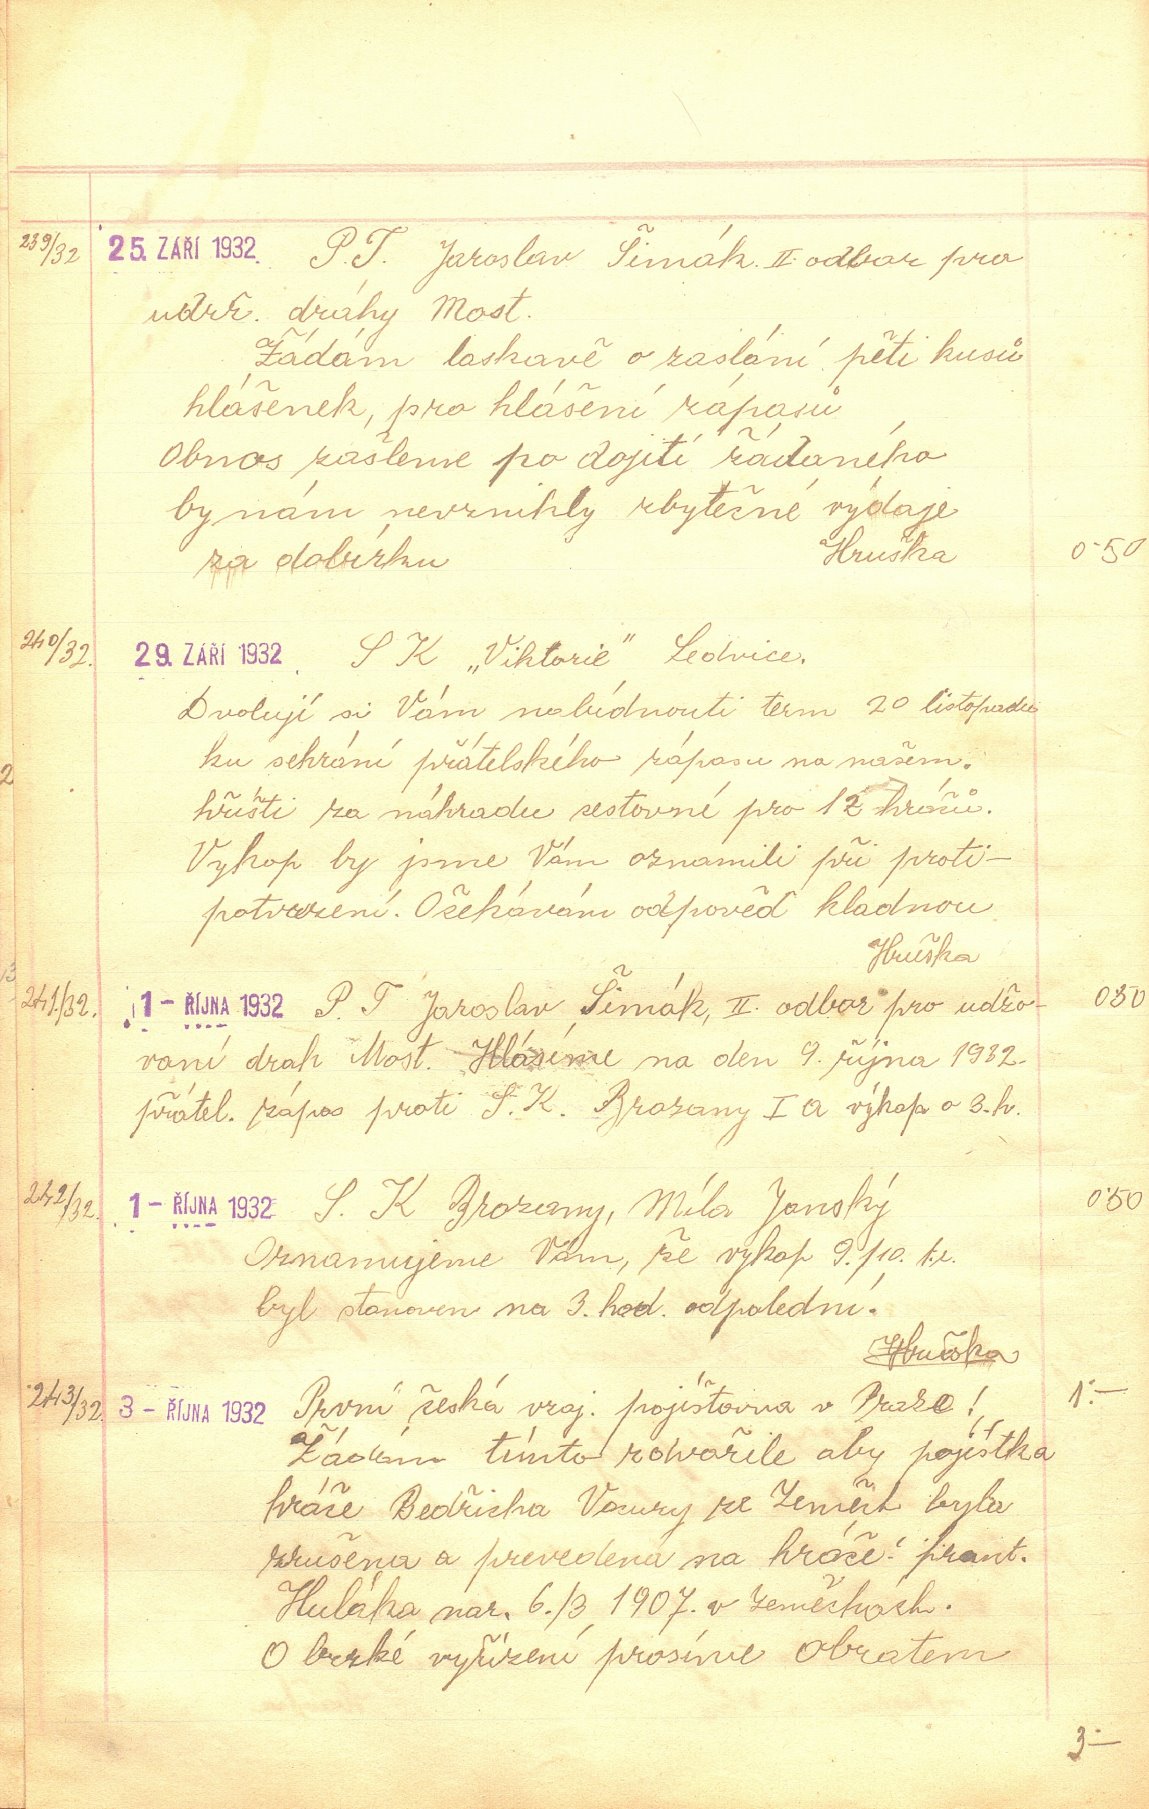 239/32 25. ZÁŘÍ 1932 P.T. Jaroslav Šimák. II. odbor pro
udrž. dráhy Most.
Žádám laskavě o zaslání pěti kusů
hlášenek, pro hlášení zápasů
Obnos zašleme po dojití žádaného
by nám nevznikly zbytečné výdaje
za dobírku Hruška 0·50
240/32. 29. ZÁŘÍ 1932 S K „Viktorie" Ledvice.
Dvolují si Vám nabídnouti term 20 listopadu
ku sehrání přátelského zápasu na našem.
hřišti za náhradu cestovné pro 12 hráčů.
Vykop by jsme Vám oznamili při proti-
potvrzení. Očekávám odpověď kladnou
Hruška
241/32. 1 - ŘÍJNA 1932 P. T Jaroslav Šimák, II. odbor pro udržo- 050
vaní drah Most. Hlásíme na den 9. října 1932.
přátel. zápas proti S.K. Brozany I a výkop o 3. h.
242/32. 1 - ŘÍJNA 1932 S. K Brozany, Míla Janský 0·50
Oznamujeme Vám, že vykop 9./10. t.r.
byl stanoven na 3. hod. odpolední.
Hruška
243/32. 3 - ŘÍJNA 1932 První česká vzaj. pojišťovna v Praze! 1·—
Žádám tímto zdvořile aby pojistka
hráče Bedřicha Vaury ze Zeměch byla
zrušena a prevedená na hráče: frant.
Huláka nar. 6./3 1907. v Zeměchách.
O brzké vyřízení prosíme obratem
3·—